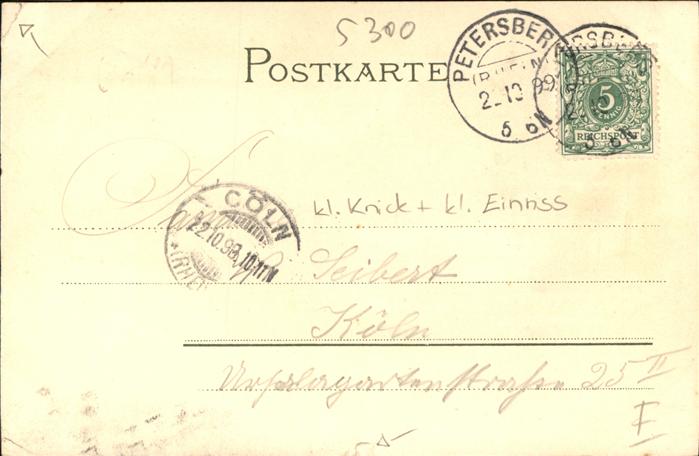 5300
POSTKARTE
PETERSBERG
(RHEIN)
2.10 99
5 6N
5
PFENNIG
REICHSPOST
CÖLN
22.10.98.10-11N
*(RHEIN
kl. Knick + kl. Einriss
Seibert
Köln
25 II
I